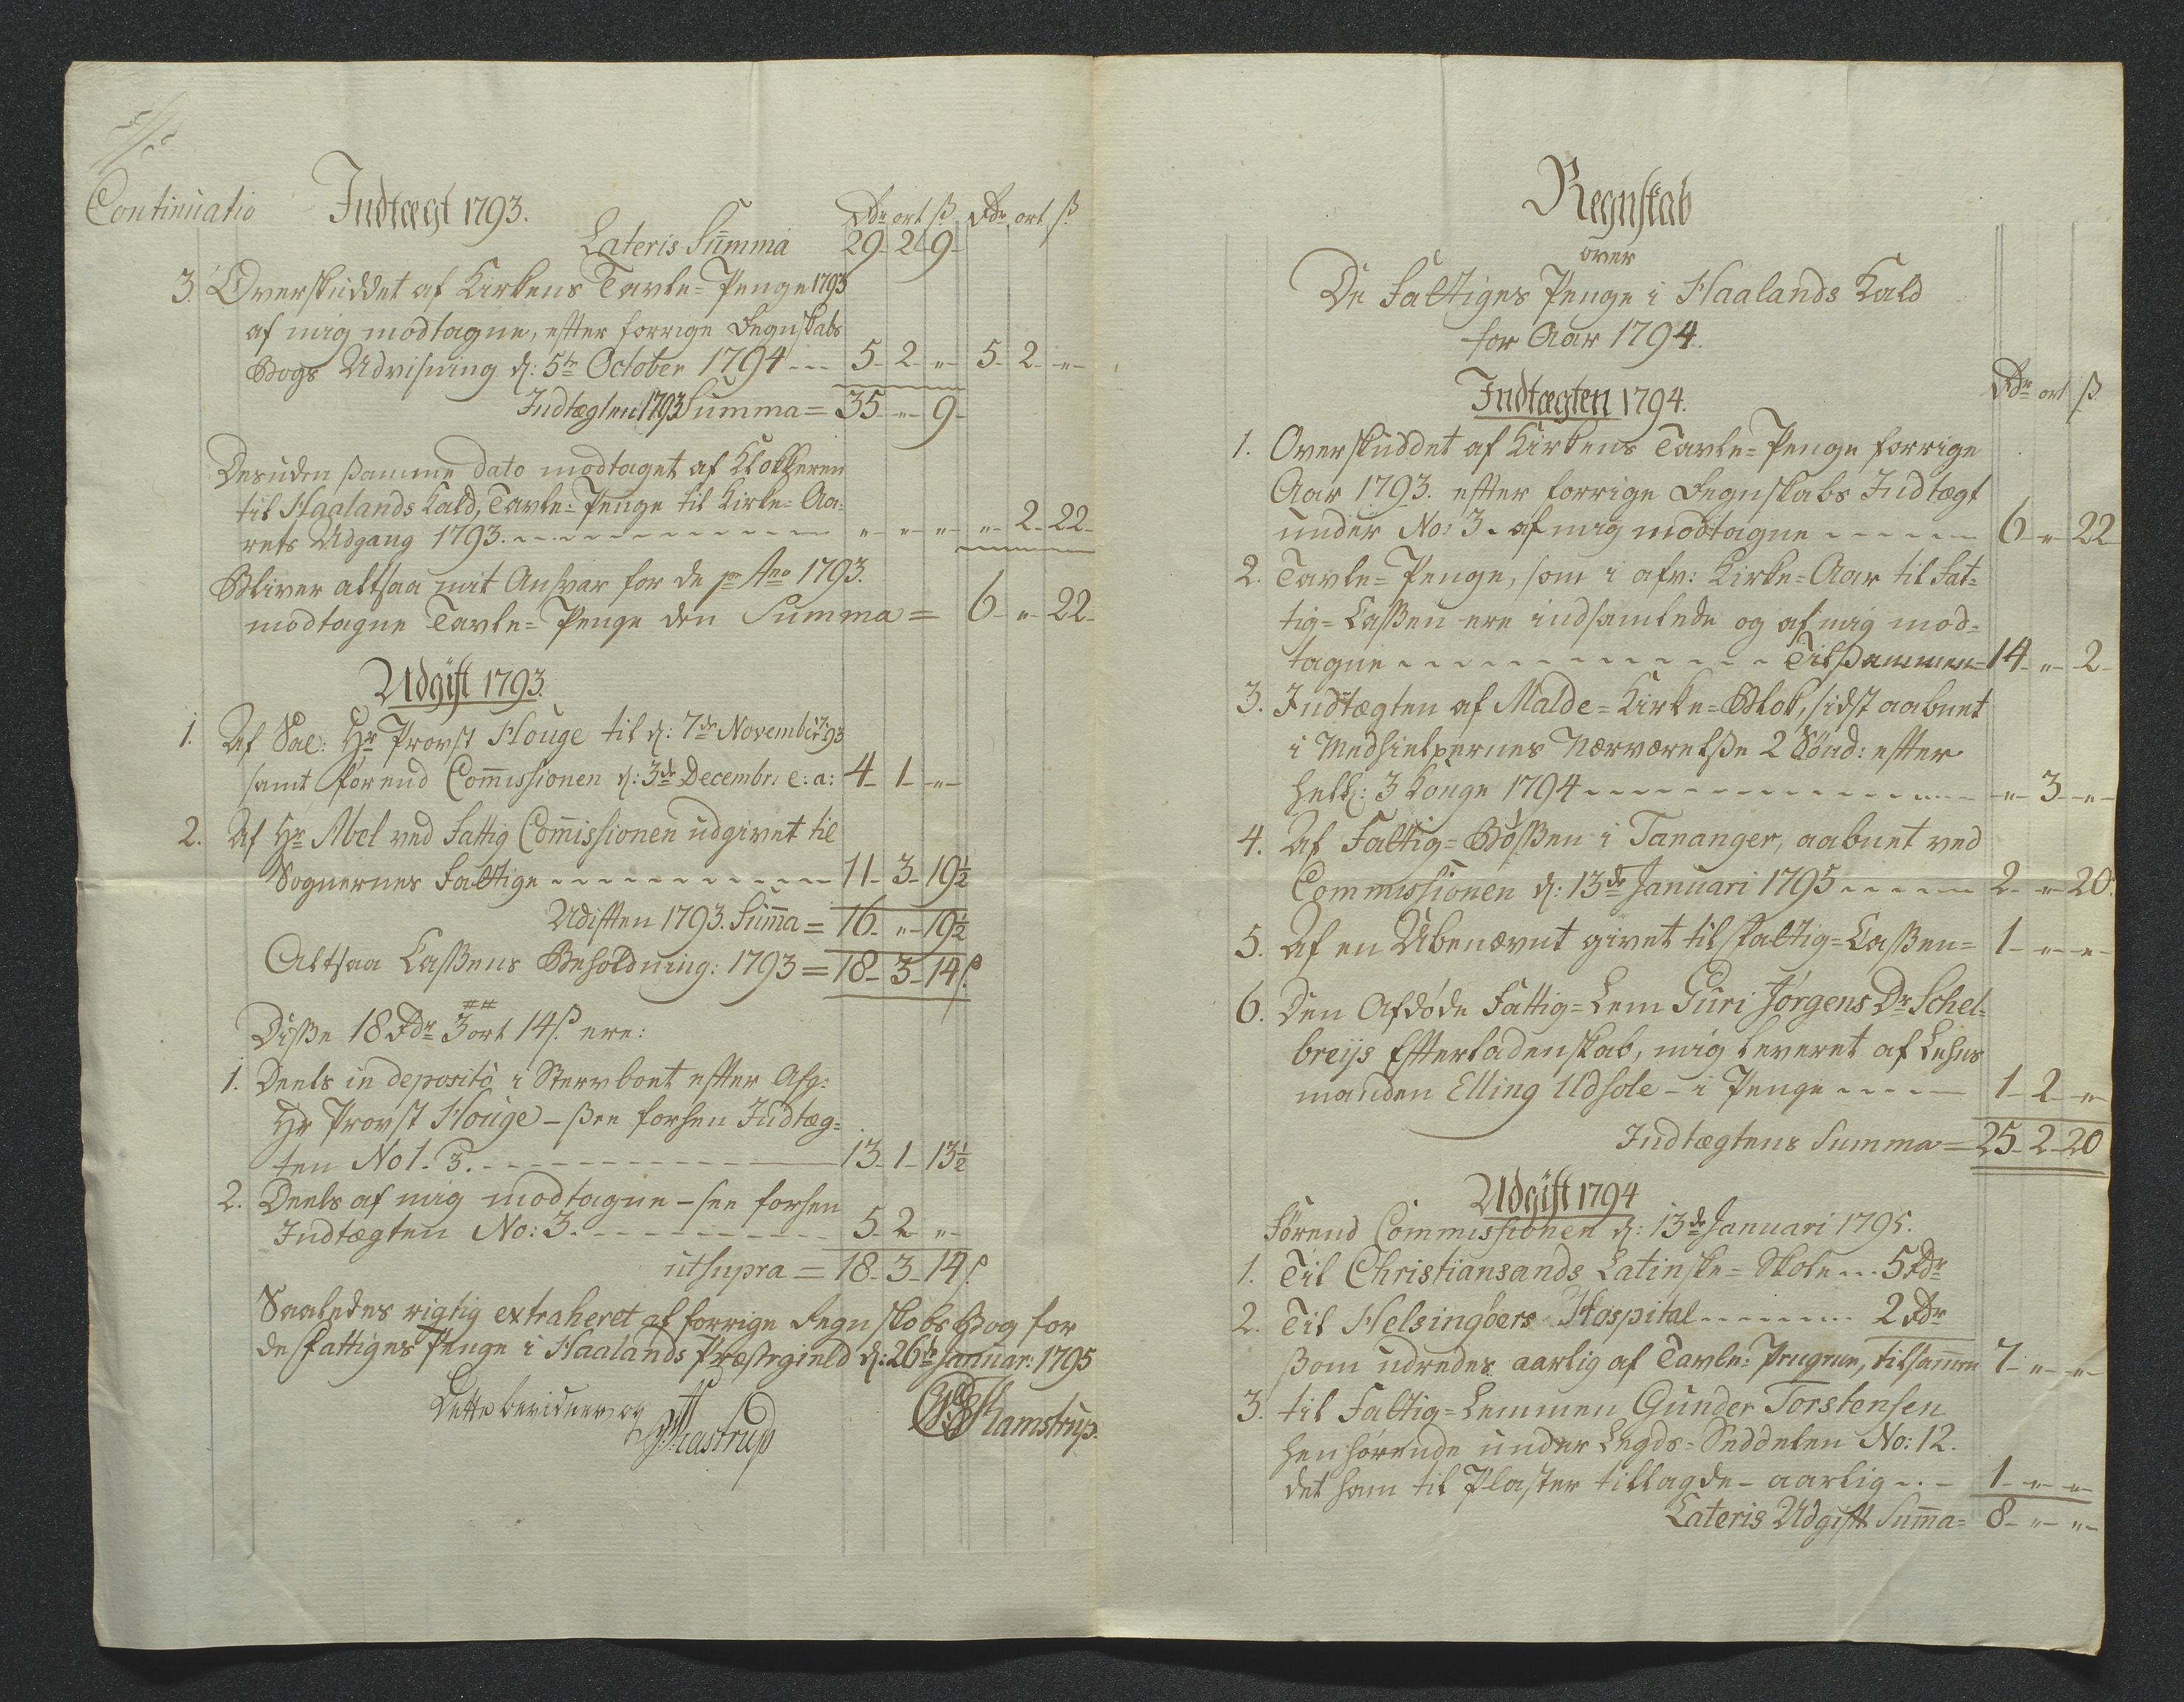 Continuatio Indtægt 1793.
Rdr ort ß Rdr ort ß
Lateris Summa 29 - 2 - 9 -
3. Overskuddet af Kirkens Tavle-Penge 1793
af mig modtagne, efter forrige Regnskabs
Bogs Udvisning d: 5te October 1794 --- 5 - 2 - " - 5 - 2 - " -
Indtægten 1793 Summa = 35 - " - 9 -
Desuden samme dato modtaget af Klokkeren
til Haalands Kald, Tavle-Penge til Kirke-Aa-
rets Udgang 1793. ------ " - " - " - " - 2 - 22 -
Bliver altsaa mit Ansvar for de pr Ano 1793.
modtagne Tavle-Penge den Summa = 6 - " - 22 -
Udgift 1793.
1. Af Sal: Hr Provst Houge til d: 7de Novembr: 1793
samt förend Com̄issionen d: 3de Decembr: e: a: 4 - 1 - " -
2. Af Hr Abel ved Fattig Com̄issionen udgivet til
Sognernes Fattige ------ 11 - 3 - 19½
Udgiften 1793. Sum̄a = 16 - " - 19½
Altsaa Cassens Beholdning: 1793 = 18 - 3 - 14 ß
Disse 18 Rdr 3 ort 14 ß. ere:
1. Deels in deposito i Stervboet efter Afg:
Hr Provst Houge - see forhen Indtæg-
ten No 1. 3. ------ 13 - 1 - 13½
2. Deels af mig modtagne - see forhen
Indtægten No: 3. ------ 5 - 2 - " -
ut supra = 18 - 3 - 14 ß
Saaledes rigtig extraheret af forrige Regnskabs Bog for
de Fattiges Penge i Haalands Præstegield d: 26de Januar: 1795
Dette bevidner og
Kamstrup.
Regnskab
over
De Fattiges Penge i Haalands Kald
for Aar 1794.
Indtægten 1794. Rdr ort ß
1. Overskuddet af Kirkens Tavle-Penge forrige
Aar 1793. efter forrige Regnskabs Indtægt
under No: 3. af mig modtagne ------ 6 - " - 22
2. Tavle-Penge, som i afv: Kirke-Aar til Fat-
tig-Cassen ere indsamlede og af mig mod-
tagne ------ Tilsammen = 14 - " - 2 -
3. Indtægten af Malde-Kirke-Blok, sidst aabnet
i Medhielpernes Nærværelse 2 Sönd: efter
hell: 3 Konge 1794 ------ " - 3 - " -
4. Af Fattig-Bössen i Tananger, aabnet ved
Commissionen d: 13de Januari 1795 ------ 2 - " - 20.
5. Af en Ubenævnt givet til Fattig-Cassen = 1 - " - " -
6. Den Afdöde Fattig-Lem Guri Jörgens Dr Schei-
breijs Efterladenskab, mig leveret af Lehns
manden Elling Udsole - i Penge ----- 1 - 2 - " -
Indtægtens Summa = 25 - 2 - 20
Udgift 1794
Förend Commissionen d: 13de Januari 1795.
1. Til Christiansands Latinske-Skole --- 5 Rdr
2. Til Helsingöers Hospital ------ 2 Rdr
som udredes aarlig af Tavle-Pengene, tilsam̄en 7 - " - " -
3. til Fattig-Lemmen Gunder Torstensen
henhörende under Legds-Seddelen No: 12.
det ham til Plaster tillagde - aarlig --- 1 - " - " -
Lateris Udgift Sum̄a = 8 - " - " -